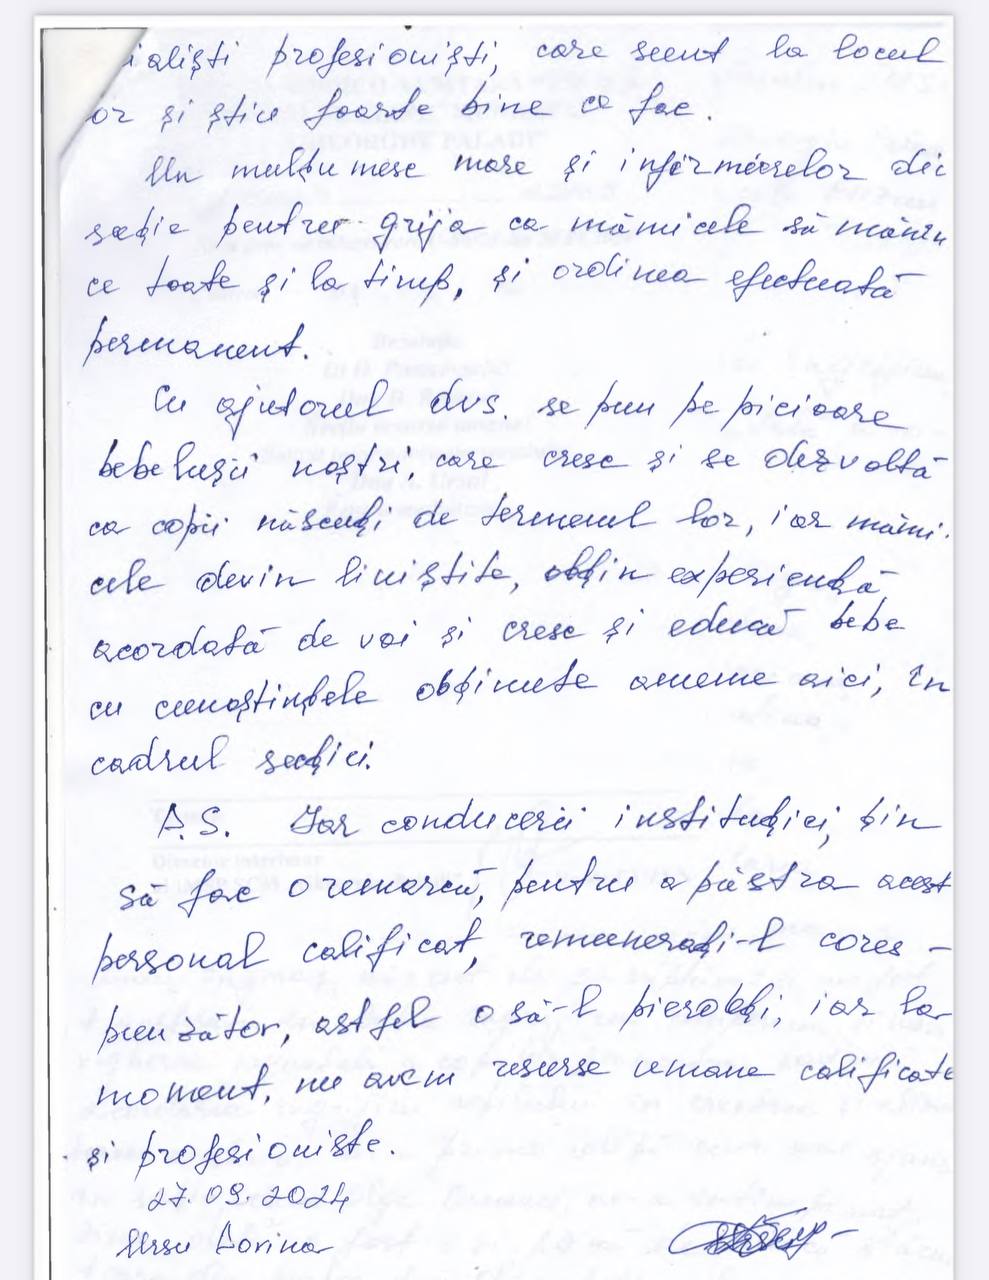 ialiști profesioniști, care sunt la locul
or și știu foarte bine ce fac.
Un mulțumesc mare și infirmierelor din
secție pentru grija ca mămicele să mănîn
ce toate și la timp, și ordinea efectuată
permanent.
Cu ajutorul dvs. se pun pe picioare
bebelușii noștri, care cresc și se dezvoltă
ca copii născuți de termenul lor, iar mămi-
cele devin liniștite, obțin experiență
acordată de voi și cresc și educă bebe
cu cunoștințele obținute anume aici, în
cadrul secției.
P.S. Iar conducerii instituției, țin
să fac o remarcă, pentru a păstra acest
personal calificat, remunerați-l cores-
punzător, astfel o să-l pierdeți, iar la
moment, nu avem resurse umane calificate
și profesioniste.
27.09.2024
Ursu Dorina